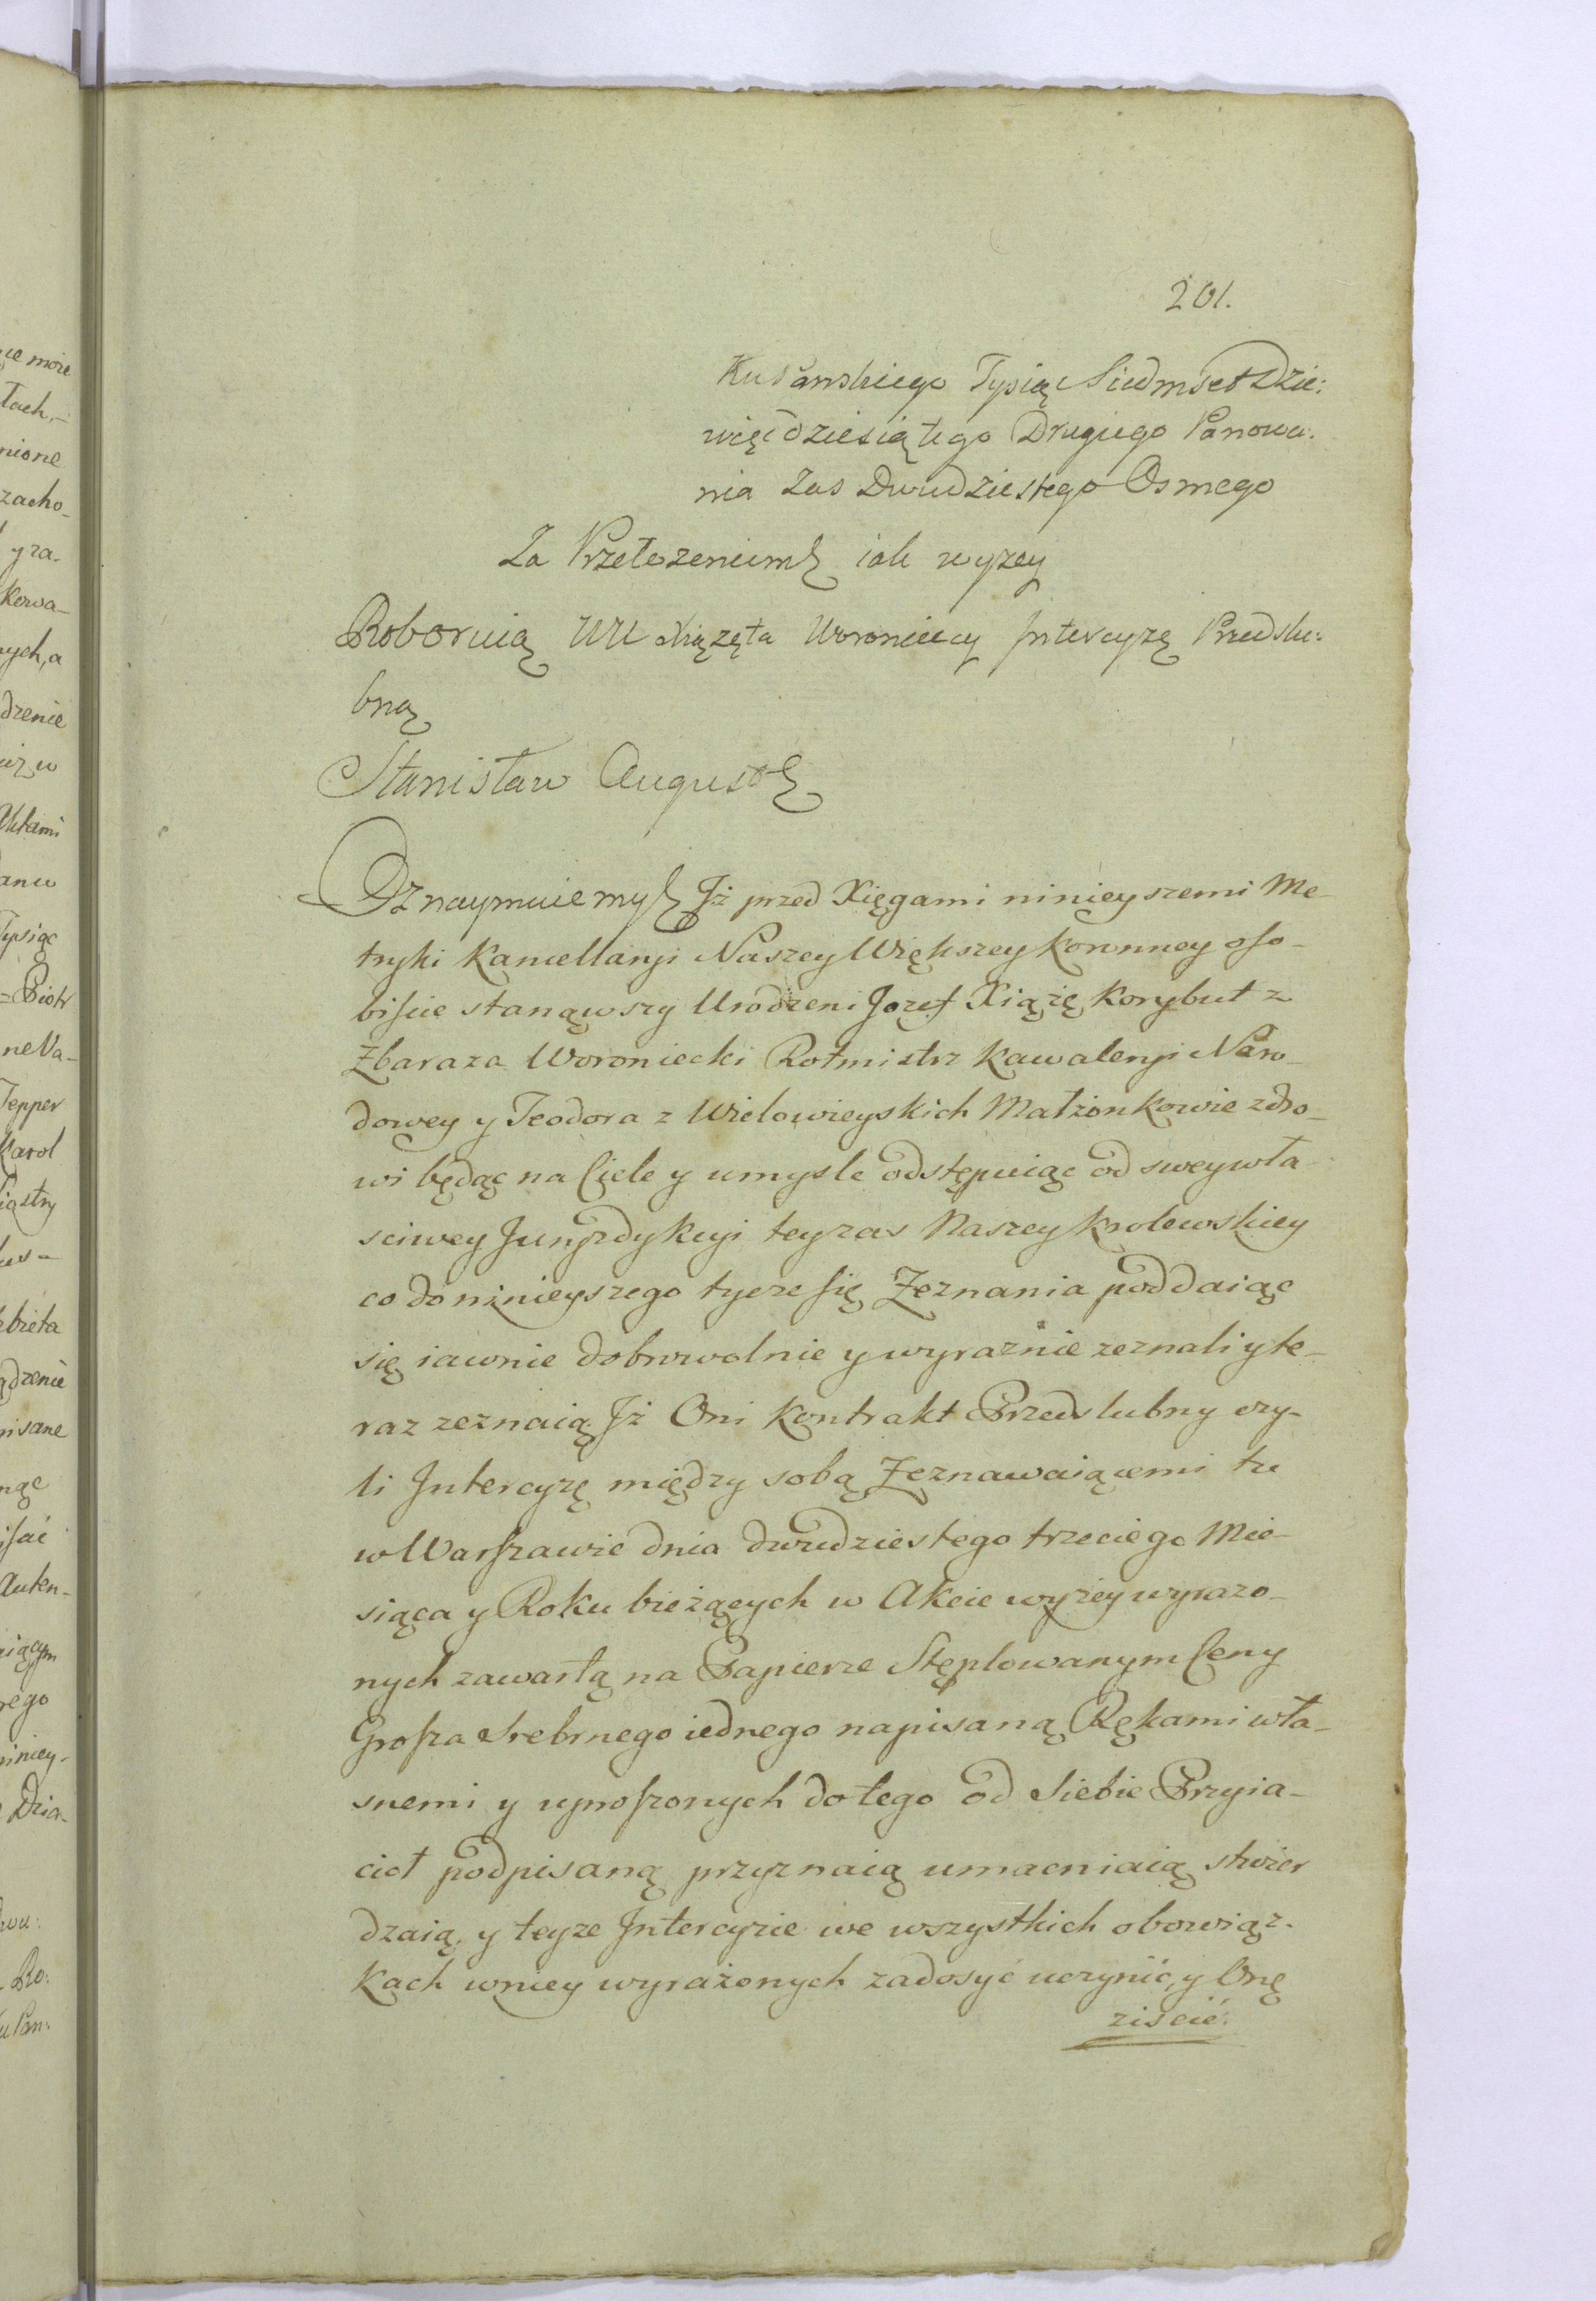 201.
Kusanskiego Tysiąc Siedmset Dzie:
więcdziesiątego Drugiego Panowa:
nia Zas Dwudziestego Osmego
Za Przełozeniem iak wyzey
Roboruią WW Xiązęta Woronieccy Intercyzę Przedslu:
bną
Stanisław August
Oznaymuiemy Iż przed Xięgami ninieyszemi Me-
tryki Kancellaryi Naszey Większey Koronney oso-
biście stanąwszy Urodzeni Jozef Xiążę Korybut z
Zbaraza Woroniecki Rotmistrz Kawaleryi Naro-
dowey y Teodora z Wielowieyskich Małżonkowie zdro-
wi będąc na Ciele y umysle odstępuiąc od swey wła-
sciwey Juryzdykcyi teyzas Naszey Krolewskiey
co do ninieyszego tycze się Zeznania poddaiąc
się iawnie dobrowolnie y wyraznie zeznali y te-
raz zeznaią Iż Oni Kontrakt Przedslubny czy-
li Intercyzę między sobą Zeznawaiącemi tu
w Warszawie dnia dwudziestego trzeciego Mie-
siąca y Roku bieżących w Akcie wyżey wyrazo-
nych zawartą na Papierze Stęplowanym Ceny
Grosza Srebrnego iednego napisaną Rękami wła-
snemi y uproszonych do tego od Siebie Przyia-
cioł podpisaną przyznaią umacniaią stwier
dzaią y teyze Intercyzie we wszystkich obowiąz-
kach wniey wyrażonych zadosyć uczynić, y Onę
ziscić.